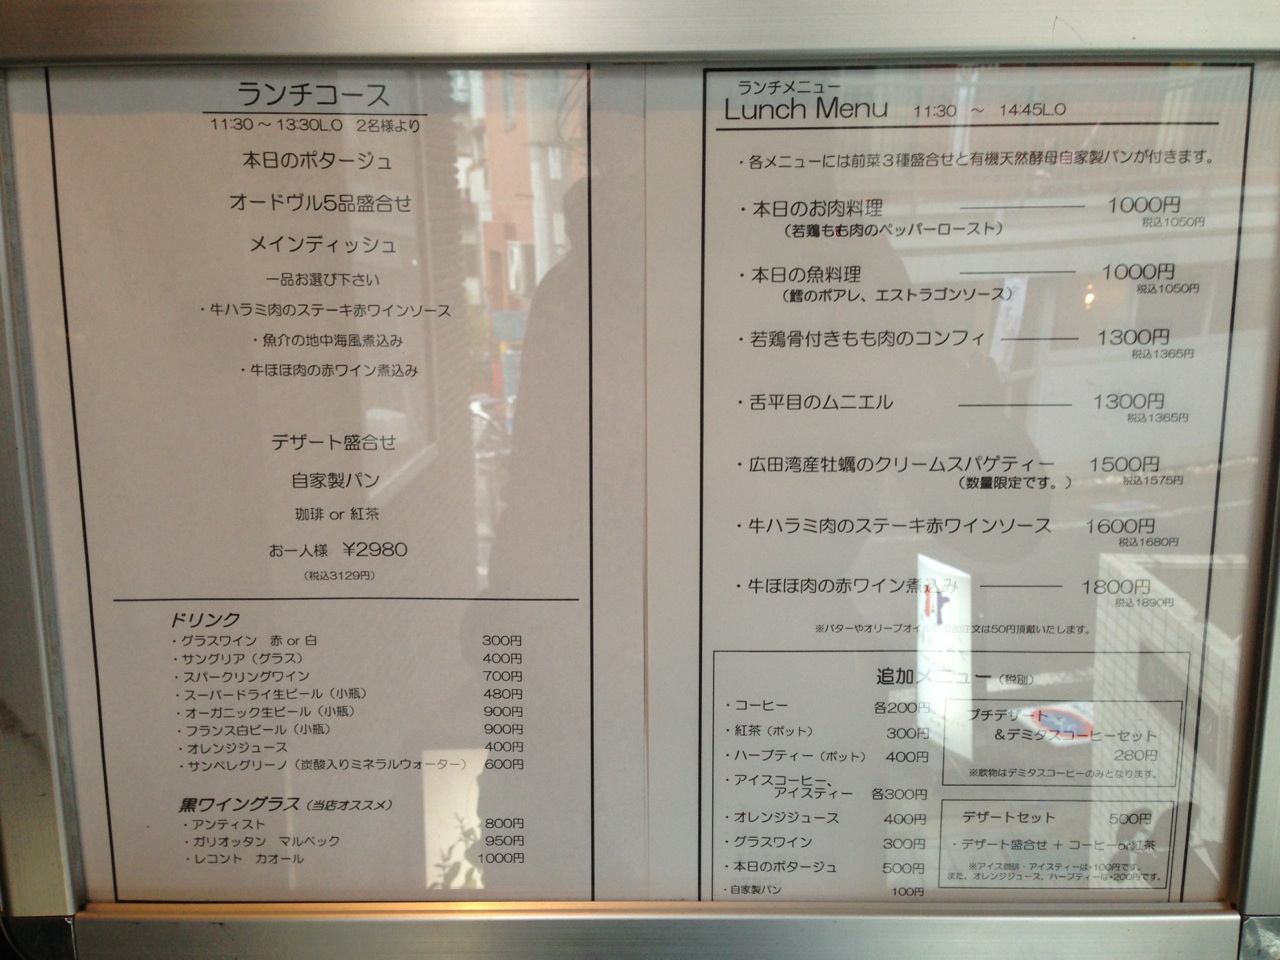 ランチコース
11:30 ～ 13:30L.O 2名様より
本日のポタージュ
オードヴル5品盛合せ
メインディッシュ
一品お選び下さい
・牛ハラミ肉のステーキ赤ワインソース
・魚介の地中海風煮込み
・牛ほほ肉の赤ワイン煮込み
デザート盛合せ
自家製パン
珈琲 or 紅茶
お一人様 ¥2980
(税込3129円)
ドリンク
・グラスワイン 赤 or 白 300円
・サングリア(グラス) 400円
・スパークリングワイン 700円
・スーパードライ生ビール(小瓶) 480円
・オーガニック生ビール(小瓶) 900円
・フランス白ビール(小瓶) 900円
・オレンジジュース 400円
・サンペレグリーノ(炭酸入りミネラルウォーター) 600円
黒ワイングラス(当店オススメ)
・アンティスト 800円
・ガリオッタン マルベック 950円
・レコント カオール 1000円
ランチメニュー
Lunch Menu 11:30 ～ 14:45L.O
・各メニューには前菜3種盛合せと有機天然酵母自家製パンが付きます。
・本日のお肉料理 1000円
税込1050円
(若鶏もも肉のペッパーロースト)
・本日の魚料理 1000円
税込1050円
(鱈のポアレ、エストラゴンソース)
・若鶏骨付きもも肉のコンフィ 1300円
税込1365円
・舌平目のムニエル 1300円
税込1365円
・広田湾産牡蠣のクリームスパゲティー 1500円
(数量限定です。) 税込1575円
・牛ハラミ肉のステーキ赤ワインソース 1600円
税込1680円
・牛ほほ肉の赤ワイン煮込み 1800円
税込1890円
※バターやオリーブオイル 注文は50円頂戴いたします。
追加メニュー(税別)
・コーヒー 各200円
・紅茶(ポット) 300円
・ハーブティー(ポット) 400円
・アイスコーヒー、
アイスティー 各300円
・オレンジジュース 400円
・グラスワイン 300円
・本日のポタージュ 500円
・自家製パン 100円
プチデザート
&デミタスコーヒーセット
280円
※飲物はデミタスコーヒーのみとなります。
デザートセット 500円
・デザート盛合せ + コーヒーor紅茶
※アイス珈琲・アイスティーは+100円です。
また、オレンジジュース、ハーブティーは+200円です。